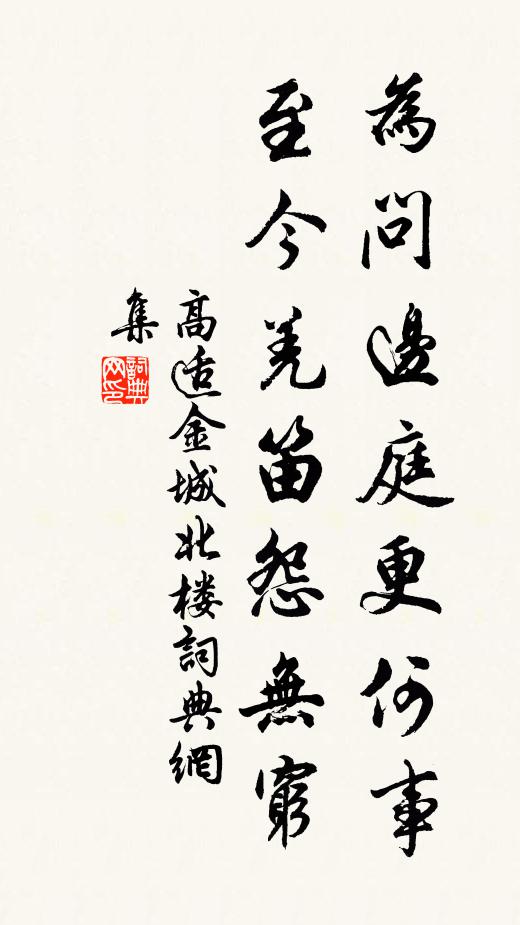 為問邊庭更何事
至今羌笛怨無窮
高适金城北楼詞典網
集
詞典网印